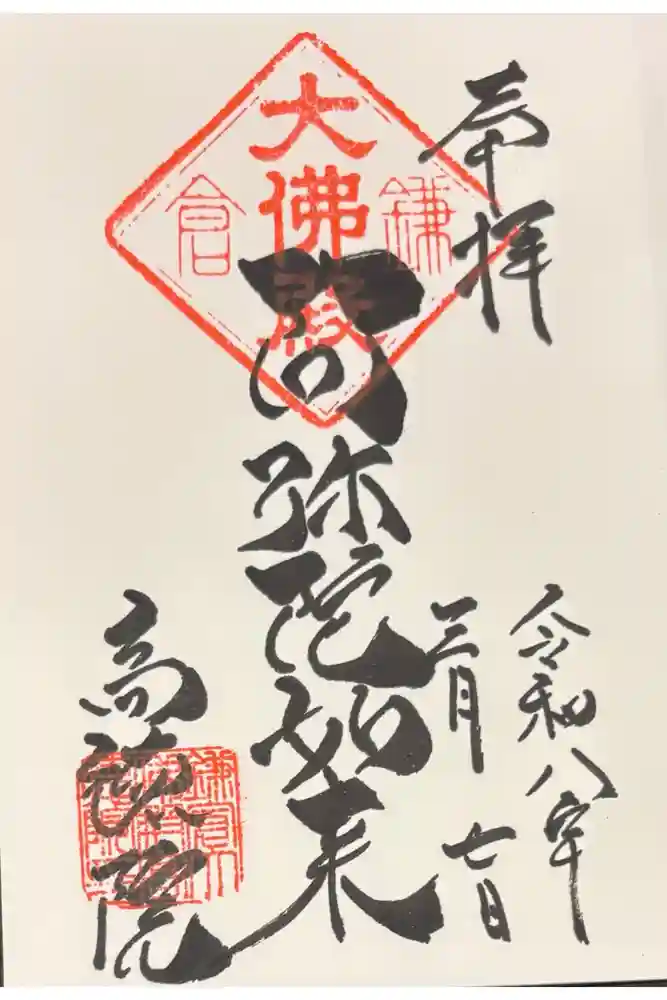 奉拝
令和八年
三月七日
阿弥陀如来
大佛殿
鎌倉
高徳院